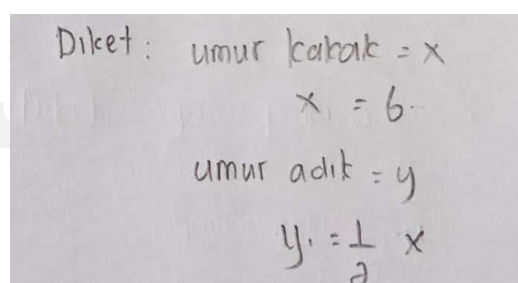 Diket : umur kakak = x
x = 6.
umur adik = y
y. = 1/2 x